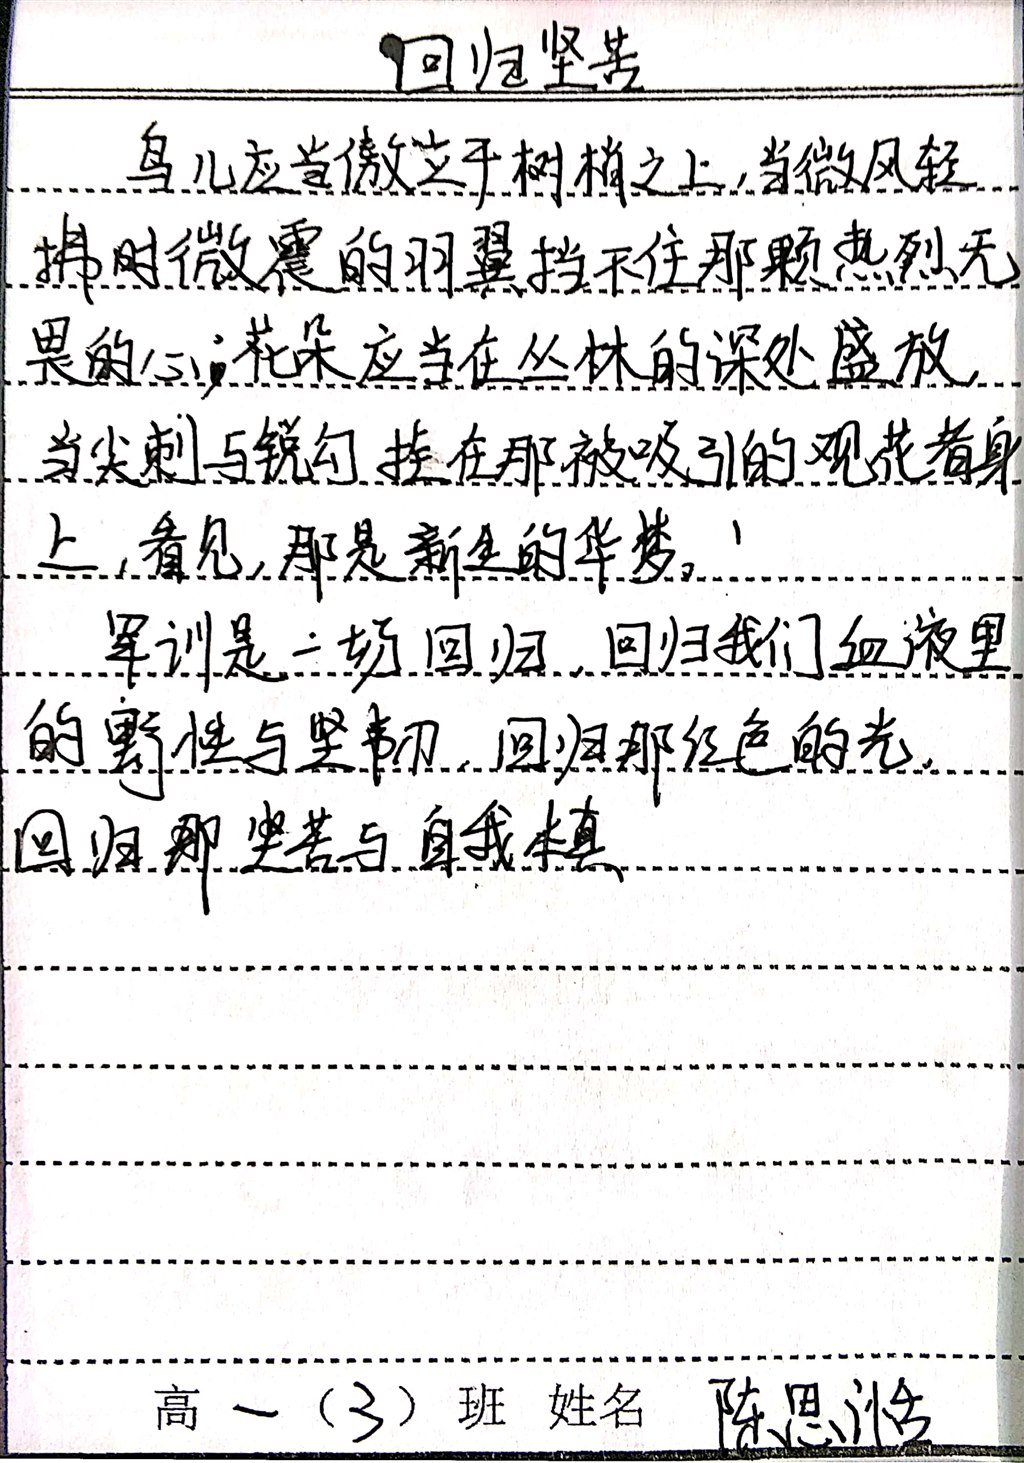 回归坚苦
鸟儿应当傲立于树梢之上,当微风轻
拂时微震的羽翼挡不住那颗热烈无
畏的心;花朵应当在丛林的深处盛放,
当尖刺与锐勾挂在那被吸引的观花者身
上,看见,那是新生的华梦。
军训是一场回归,回归我们血液里
的野性与坚韧,回归那红色的光,
回归那坚苦与自我本真
高一(3)班 姓名 陈思浩